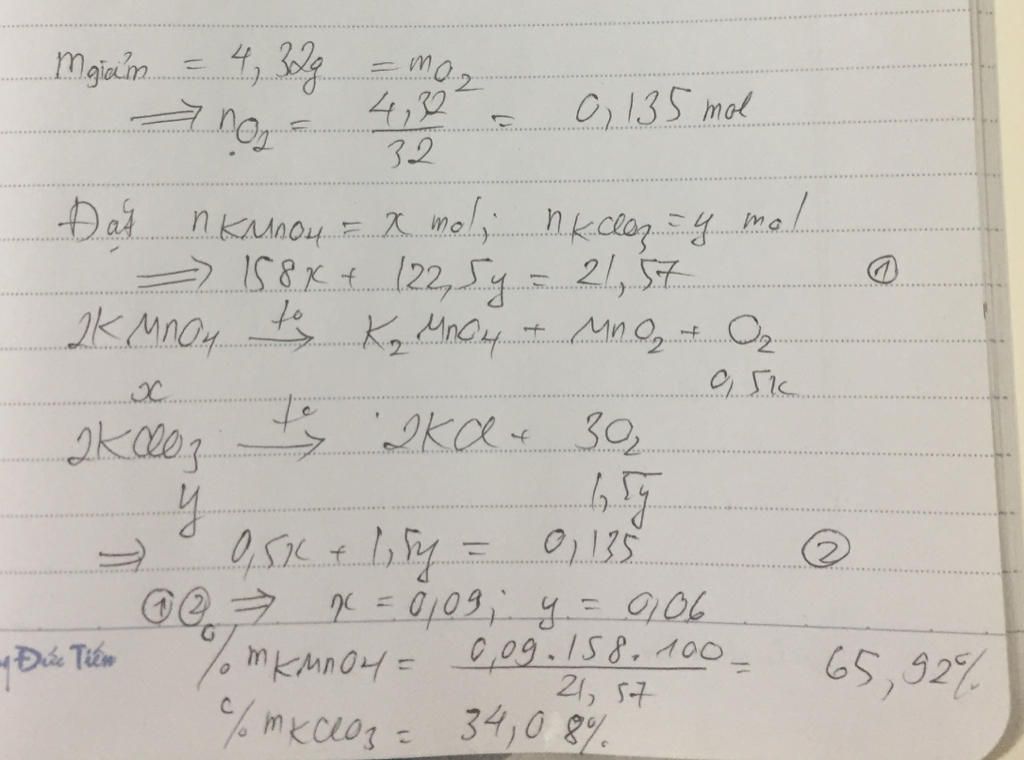 m giảm = 4,32g = mO2
⟹ nO2 = 4,32/32 = 0,135 mol
Đặt nKMnO4 = x mol; nKClO3 = y mol
⟹ 158x + 122,5y = 21,57 ①
2KMnO4 →t° K2MnO4 + MnO2 + O2
x 0,5x
2KClO3 →t° 2KCl + 3O2
y 1,5y
⟹ 0,5x + 1,5y = 0,135 ②
①② ⟹ x = 0,09; y = 0,06
% mKMnO4 = 0,09.158.100/21,57 = 65,92%
% mKClO3 = 34,08%
Đức Tiến